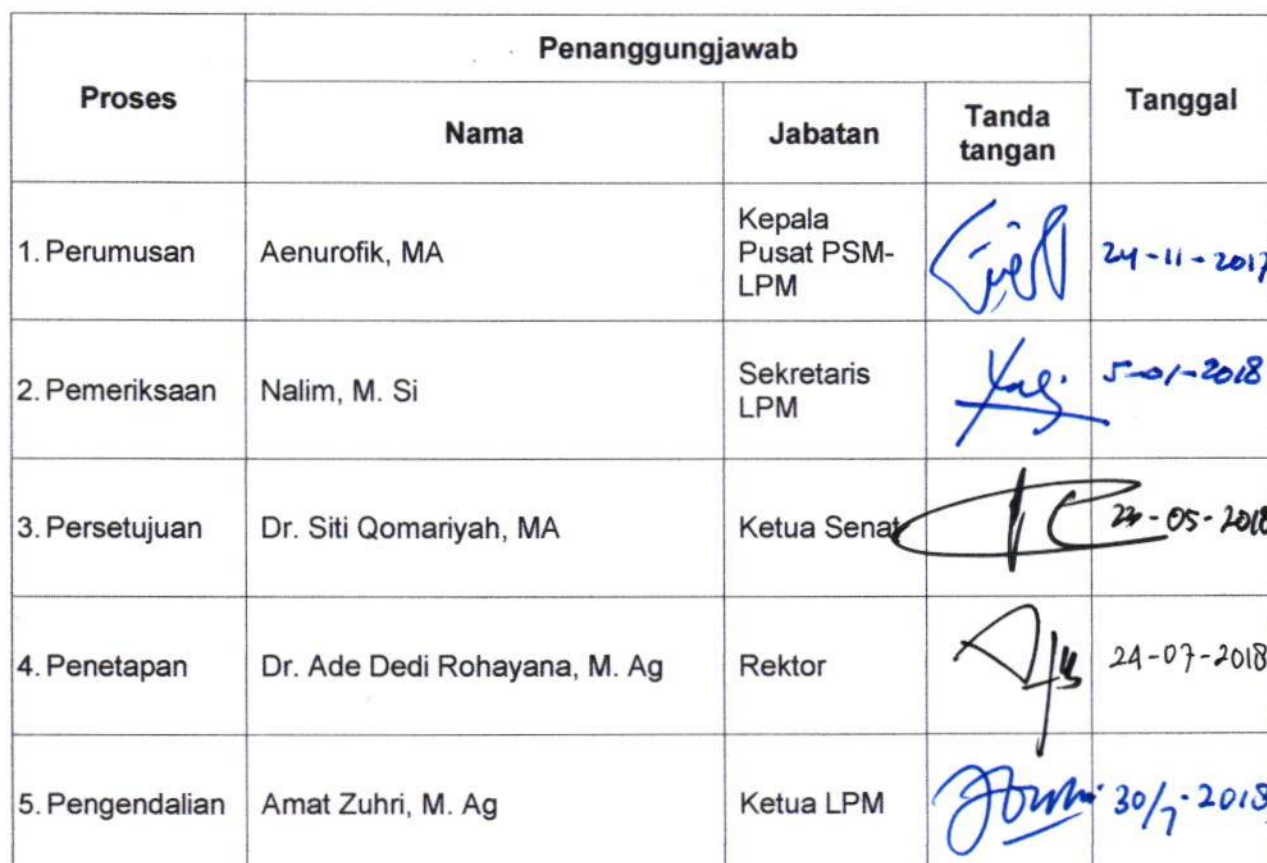 Proses
Penanggungjawab
Tanggal
Nama
Jabatan
Tanda
tangan
1. Perumusan
Aenurofik, MA
Kepala
Pusat PSM-
LPM
24-11-2017
2. Pemeriksaan
Nalim, M. Si
Sekretaris
LPM
5-01-2018
3. Persetujuan
Dr. Siti Qomariyah, MA
Ketua Senat
-05-2018
4. Penetapan
Dr. Ade Dedi Rohayana, M. Ag
Rektor
24-07-2018
5. Pengendalian
Amat Zuhri, M. Ag
Ketua LPM
30/7-2018